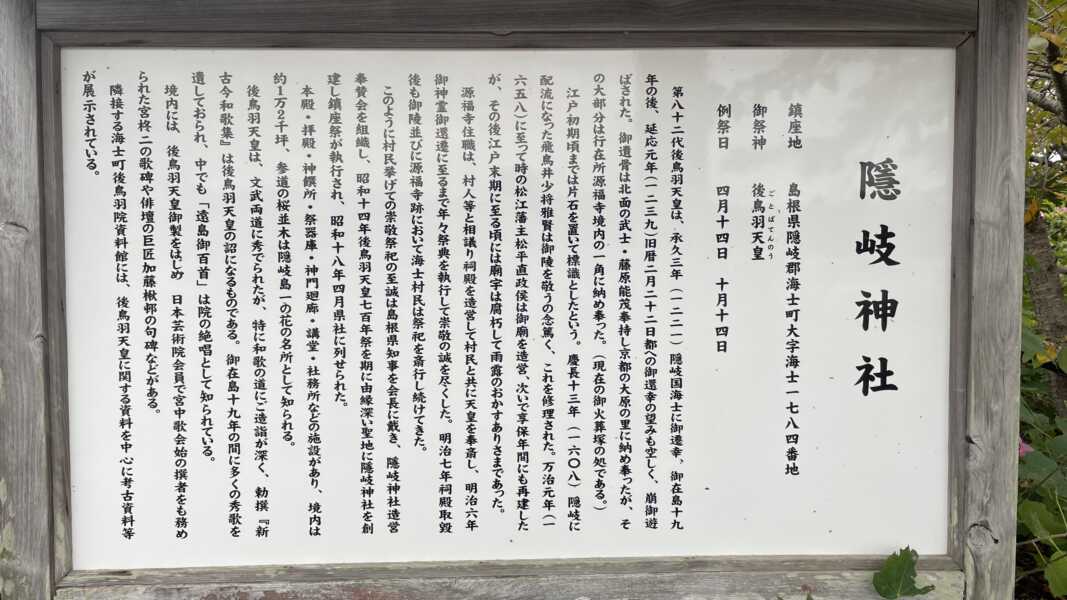 隠岐神社
鎮座地　島根県隠岐郡海士町大字海士一七八四番地
御祭神　後鳥羽天皇
ごとばてんのう
例祭日　四月十四日　十月十四日
第八十二代後鳥羽天皇は、承久三年（一二二一）隠岐国海士に御遷幸。御在島十九
年の後、延応元年（一二三九）旧暦二月二十二日都への御還幸の望みも空しく、崩御遊
ばされた。御遺骨は北面の武士・藤原能茂奉持し京都の大原の里に納め奉ったが、そ
の大部分は行在所源福寺境内の一角に納め奉った。（現在の御火葬塚の処である。）
江戸初期頃までは片石を置いて標識としたという。慶長十三年（一六〇八）隠岐に
配流になった飛鳥井少将雅賢は御陵を敬うの念篤く、これを修理された。万治元年（一
六五八）に至って時の松江藩主松平直政侯は御廟を造営、次いで享保年間にも再建した
が、その後江戸末期に至る頃には廟宇は腐朽して雨露のおかすありさまであった。
源福寺住職は、村人等と相議り祠殿を造営して村民と共に天皇を奉斎し、明治六年
御神霊御還遷に至るまで年々祭典を執行して崇敬の誠を尽くした。明治七年祠殿取毀
後も御陵並びに源福寺跡において海士村民は祭祀を斎行し続けてきた。
このように村民挙げての崇敬祭祀の至誠は島根県知事を会長に戴き、隠岐神社造営
奉賛会を組織し、昭和十四年後鳥羽天皇七百年祭を期に由縁深い聖地に隠岐神社を創
建し鎮座祭が執行され、昭和十八年四月県社に列せられた。
本殿・拝殿・神饌所・祭器庫・神門廻廊・講堂・社務所などの施設があり、境内は
約１万２千坪、参道の桜並木は隠岐島一の花の名所として知られる。
後鳥羽天皇は、文武両道に秀でられたが、特に和歌の道にご造詣が深く、勅撰『新
古今和歌集』は後鳥羽天皇の詔になるものである。御在島十九年の間に多くの秀歌を
遺しておられ、中でも「遠島御百首」は院の絶唱として知られている。
境内には、後鳥羽天皇御製をはじめ、日本芸術院会員で宮中歌会始の撰者をも務め
られた宮柊二の歌碑や俳壇の巨匠加藤楸邨の句碑などがある。
隣接する海士町後鳥羽院資料館には、後鳥羽天皇に関する資料を中心に考古資料等
が展示されている。